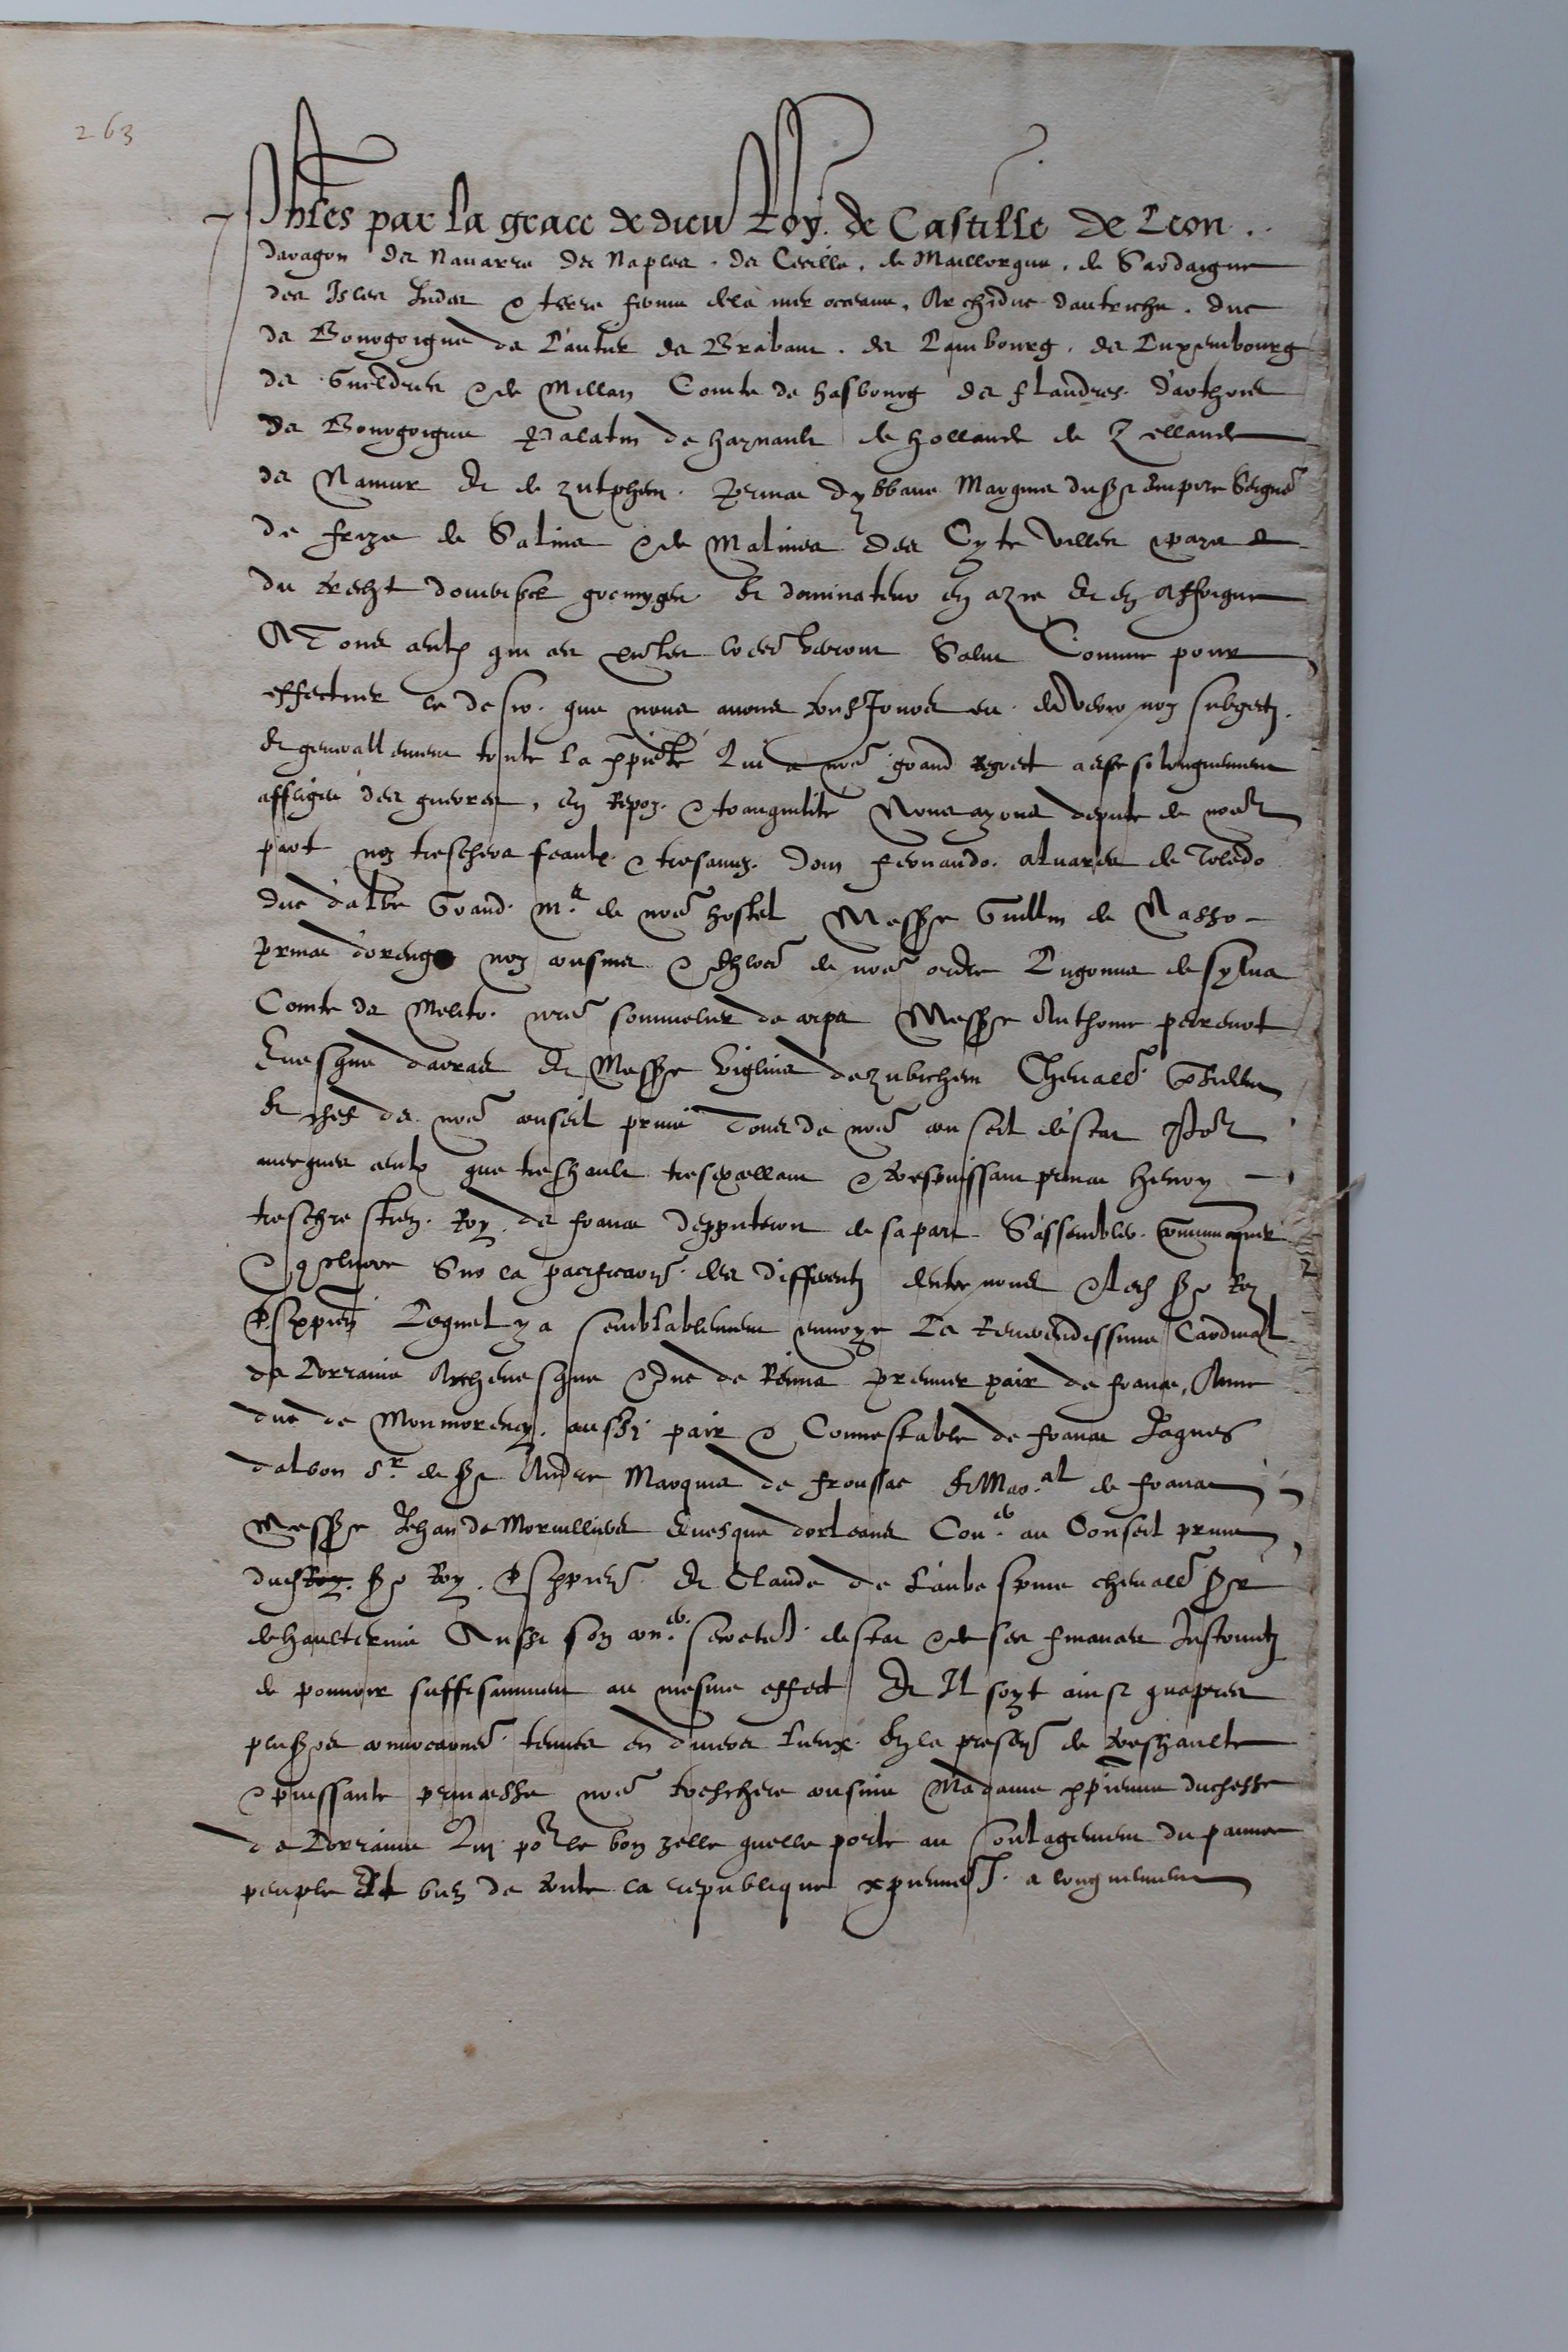 263
Phles par la grace de dieu Roy. de Castille de Leon ..
darragon de Navarre de Naples . de Cecille . de Maillorque . de Sardaigne
des Isles Indes & terre ferme dela mer oceane . Archiduc dautriche . duc
de Bourgoigne de Lautrik de Brabant . de Lambourg . de Luxembourg
de Gueldres & de Millan Comte de hasbourg de flandres . darthois
De Bourgoigne Palatin de haynault de hollande de Zellande
de Namur Et de zutphen . Prince Marquis du St Empire Seigne
de frize de Salins & de Malines des Cyte villes & pays
du trecht doverissel groenyngen Et dominateur en azie Et en Affrique
A Tous ceulx qui ces pntes lres verront Salut Comme pour
effectuer le desir que nous avons tousjours eu de veoir noz subgectz .
Et generallement toute la xpiente Qui a nre grand regret a este si longuement
affligee des guerres . En Repoz & tranquilite Nous ayons depute de nre
part noz treschers feaulx & tresamez . Dom fernando . alvares de Toledo
duc dalbe Grand mᵉ de nre hostel Messre Guillm de Nasso
prince doreng noz cousins & chlrs de nre ordre Rugomes de sylva
Comte de Melito . nre sommelier de corps Messre Anthoine perrenot
Evesque darras Et Messre viglius de zuichem Chevalr
Et chef de nre conseil prive Tous de nre conseil destat Por
avecques ceulx que treshault tresexcellent & trespuissant prince henry
treschrestien Roy de france depputeroit de sa part Sassembler . communicquer
& Sur la pacificaon des differentz dentre nous & led sr Roy
tsxpien Lequel y a semblablement envoye Le Reverendissime Cardinal
de Lorraine Archevesque & Duc de Reims premier pair de france, Anne
duc de Monmorency . aussi pair & Connestable de france Jaques
dalbon sʳ. de st Andre Marquis de fronssac & Mar.ᵃˡ de france
Messre Jehan de Morvilliers Evesque dorleans Con.ᵉʳ au Conseil prive
dud Roy . sr Roy . tsxpien Et Claude de Laubespine chevallr sr
de haulterive Aussi son con.ᵉʳ secretre destat & de ses finances Instruitz
de pouvoir suffisamment au mesme effect Et Il soyt ainsi quapres
plusrs tenues en divers lieux En la presen de treshaulte
& puissante princesse nre treschere cousine Madame xpienne duchesse
de Lorraine Qui por le bon zelle quelle porte au soulagement du pauvre
peuple Et bien de toute la republique xpienne a longuement